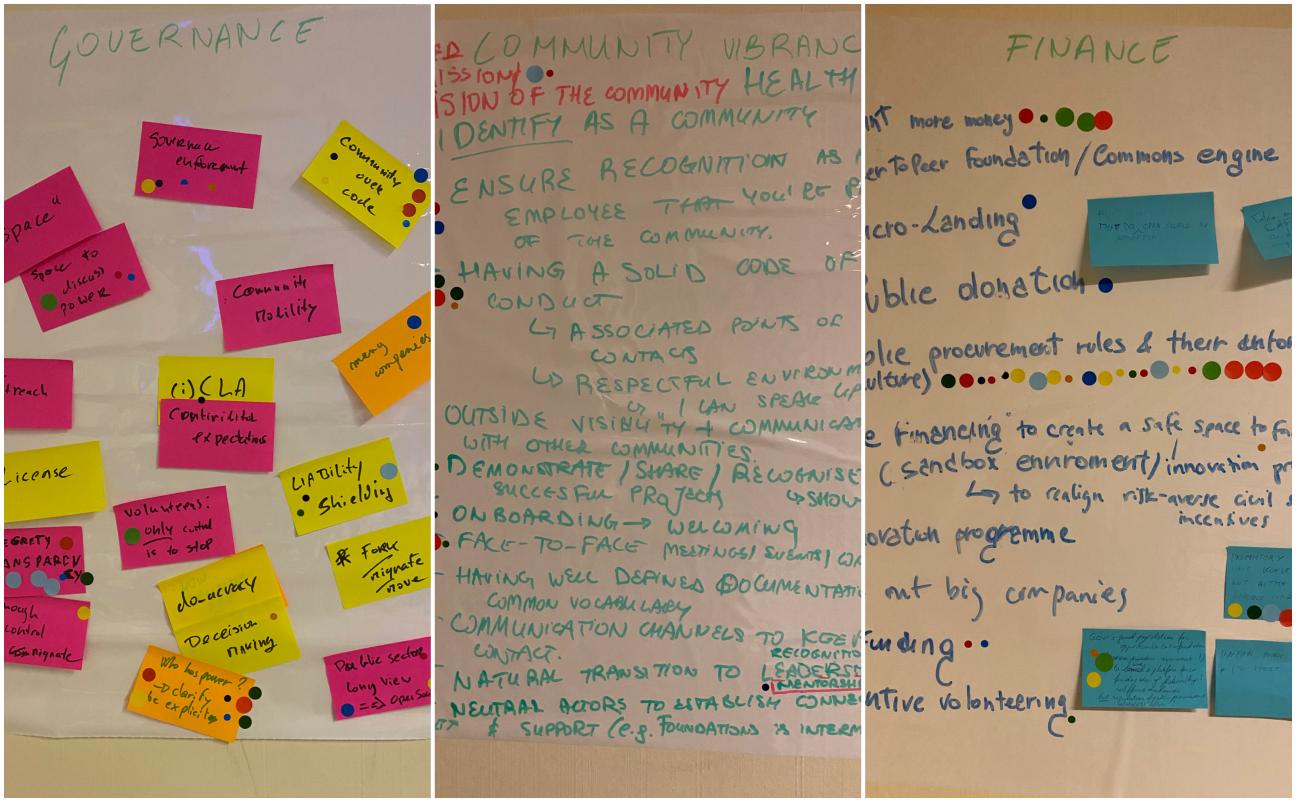 GOVERNANCE
Governance
enforcement
Community
over
code
Space"
Space to
discuss
power
Community
Mobility
many
companies
treach
(i) CLA
Contributor
expectations
License
LIABILITY
Shielding
Volunteers:
only control
is to stop
EGRETY
ANSPARCY
* Fork
migrate
move
do-ocracy
Deceision
MAKING
nough
control
migrate
Who has power?
-> clarify
be explicit
Public sector
Long view
==> Open Sou
ED COMMUNITY VIBRANC
ISSION/
ISION OF THE COMMUNITY HEALTH
IDENTIFY AS A COMMUNITY
ENSURE RECOGNITION AS
EMPLOYEE THAT YOU'RE P
OF THE COMMUNITY.
- HAVING A SOLID CODE OF
CONDUCT
↳ ASSOCIATED POINTS OF
CONTACTS
↳ RESPECTFUL ENVIRONM
↳ "I CAN SPEAK UP
OUTSIDE VISIBILITY + COMMUNICAT
WITH OTHER COMMUNITIES.
- DEMONSTRATE / SHARE / RECOGNISE
SUCCESFUL PROJECTS ↳ SHOW
- ONBOARDING -> WELCOMING
- FACE-TO-FACE MEETINGS/ EVENTS/ CO
- HAVING WELL DEFINED DOCUMENTATI
COMMON VOCABULARY
- COMMUNICATION CHANNELS TO KEEP
CONTACT.
RECOGNITIO
- NATURAL TRANSITION TO LEADERS
MENTORSHI
- NEUTRAL ACTORS TO ESTABLISH CONNE
& SUPPORT (e.g. FOUNDATIONS AS INTERM
FINANCE
int more money
er to Peer Foundation / Commons engine
icro-Landing
ublic donation
blic procurement rules & their enfor
ulture)
e Financing" to create a safe space to fa
(sandbox enviroment/innovation pr
↳ to realign risk-averse civil s
incentives
ovation programme
nt big companies
Funding
ntive volunteering